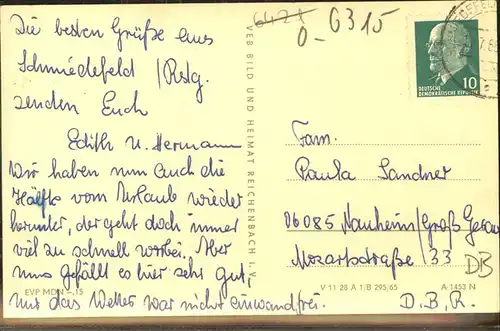 Die besten Grüße aus
Schmiedefeld / Rstg.
senden Euch
Edith u. Hermann
Wir haben nun auch die
Hälfte vom Urlaub wieder
herunter, der geht doch immer
viel zu schnell vorbei. Aber
uns gefällt es hier sehr gut,
nur das Wetter war nicht einwandfrei.
EVP MDN -,15
VEB BILD UND HEIMAT REICHENBACH I. V.
6421
0-6315
10
DEUTSCHE
DEMOKRATISCHE REPUBLIK
Fam.
Paula Sandner
06085 Nauheim/Groß Gerau
Mozartstraße 33
DB
V 11 28 A 1/B 295/65 A 1453 N
D.B.R.